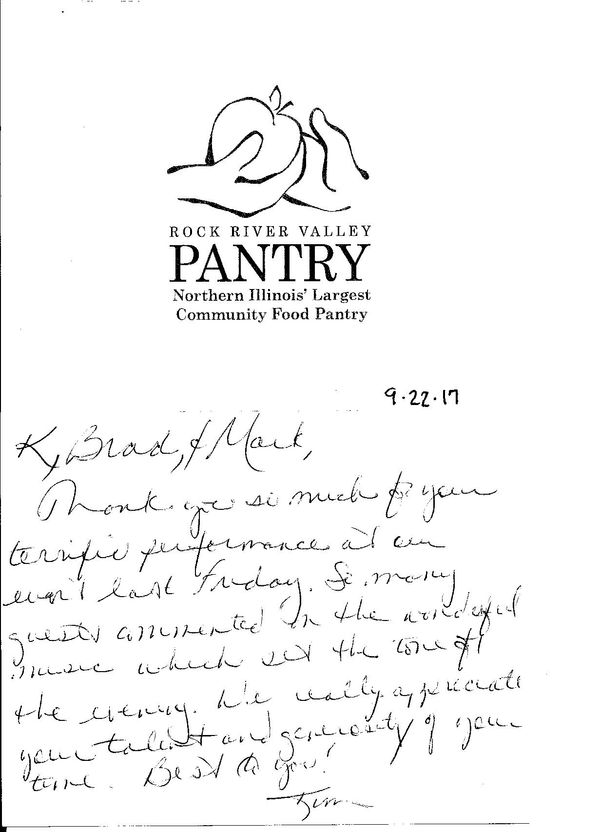 ROCK RIVER VALLEY
PANTRY
Northern Illinois' Largest
Community Food Pantry
9.22.17
K, Brad, & Mark,
Thank you so much for your
terrific performance at our
event last Friday. So many
guests commented on the wonderful
music which set the tone of
the evening. We really appreciate
your talent and generosity of your
time. Best to you!
Kim